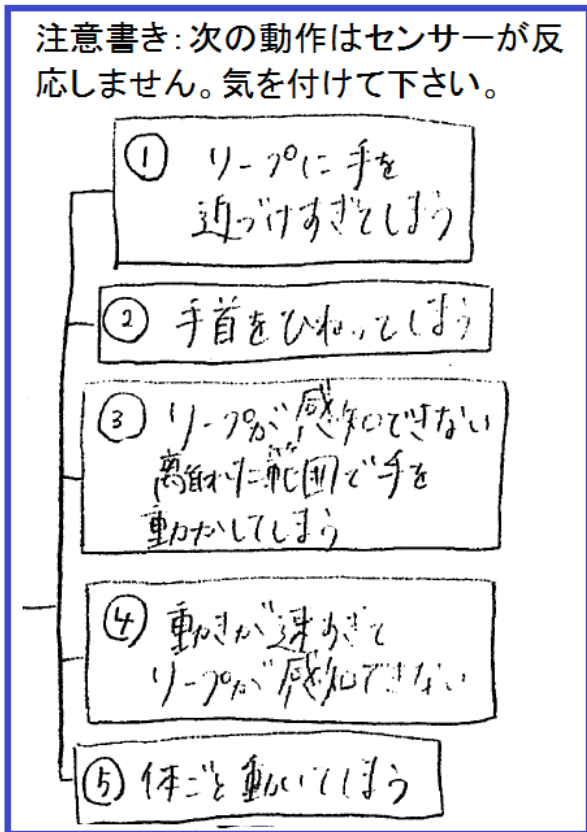 注意書き：次の動作はセンサーが反
応しません。気を付けて下さい。
① リープに手を
近づけすぎてしまう
② 手首をひねってしまう
③ リープが感知できない
離れた範囲で手を
動かしてしまう
④ 動きが速すぎて
リープが感知できない
⑤ 体ごと動いてしまう